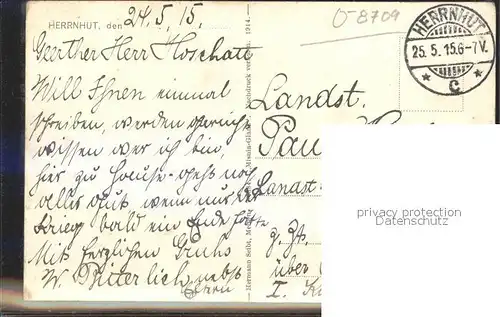 HERRNHUT, den 24.5.15.
Geerther Herr Hoschatt
Will Ihnen einmal
schreiben, werden
wissen wer ich bin,
hier zu Hause geht noch
alles gut wenn nur der
Krieg bald ein Ende hätte
Mit herzlichen Gruhs
W. Bitterlich nebst
Hermann Seibt, Meißen
1914.
O-8709
HERRNHUT
25.5.15.6-7V.
* c *
Landst.
Pau
Landst.
z. Zt.
über
I. K
privacy protection
Datenschutz